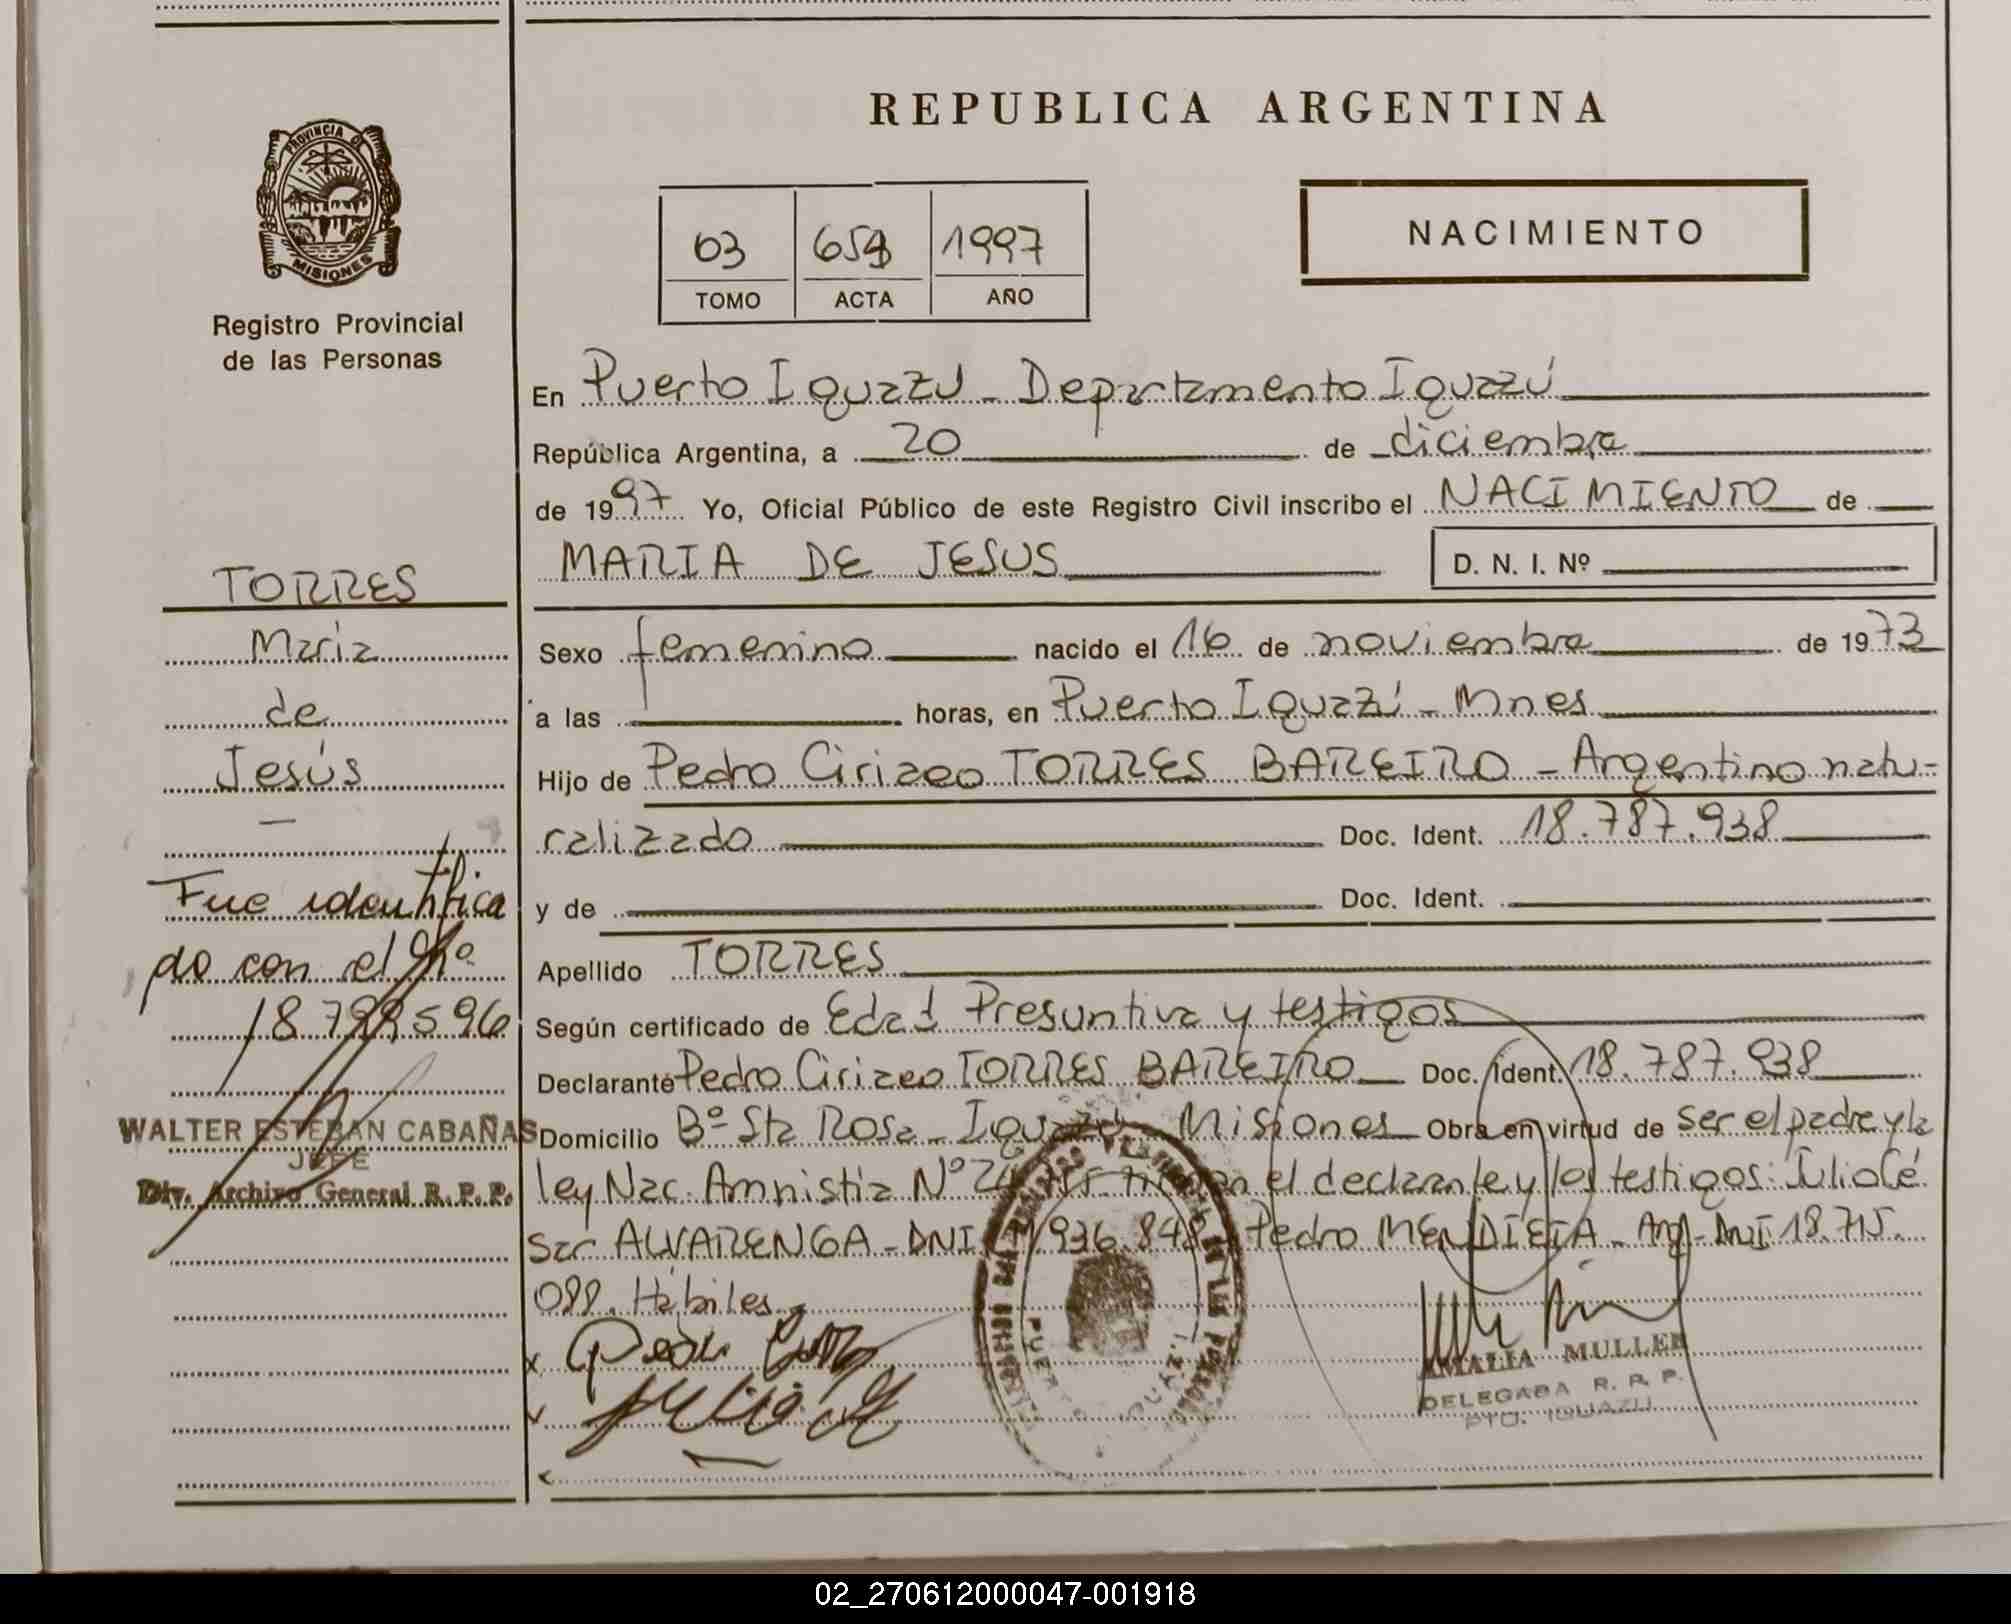 REPUBLICA ARGENTINA
PROVINCIA DE
MISIONES
Registro Provincial
de las Personas
03
1997
TOMO
ACTA
AÑO
NACIMIENTO
En Puerto Iguazú - Departamento Iguazú
República Argentina, a 20 de diciembre
de 1997 Yo, Oficial Público de este Registro Civil inscribo el NACIMIENTO de
MARIA DE JESUS
D. N. I. Nº
TORRES
María
de
Jesús
Sexo femenino nacido el 16 de noviembre de 1973
a las horas, en Puerto Iguazú - Mnes
Hijo de Pedro Ciriaco TORRES BAREIRO - Argentino natu-
ralizado Doc. Ident. 18.787.938
y de Doc. Ident.
Apellido TORRES
Según certificado de Edad Presuntiva y testigos
Declarante Pedro Ciriaco TORRES BAREIRO Doc. Ident. 18.787.938
Domicilio Bº Sta Rosa - Iguazú - Misiones Obra en virtud de ser el padre y la
ley Nac. Amnistia Nº el declarante y los testigos: Julio Cé
sar ALVARENGA - DNI 936.848 - Pedro MENDIETA - Arg - DNI 18.715.
088. Hábiles
Fue identifica
do con el Nº
WALTER ESTEBAN CABAÑAS
JEFE
Div. Archivo General R. P. P.
AMALIA MULLER
DELEGADA R. P. P.
PTO. IGUAZU
02_270612000047-001918